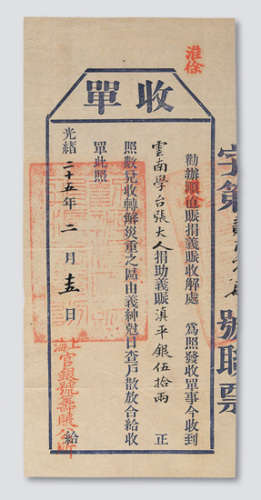 淮徐
收單
勸辦淮徐賑捐義賑收解處 為照發收單事今收到
雲南學台張大人捐助義賑滇平銀伍拾兩 正
照數兌收轉解災重之區由義紳尅日查戶散放合給收
單此照
光緒二十五年二月十五日
上海官銀號籌賑公所 給
字第 號聯票